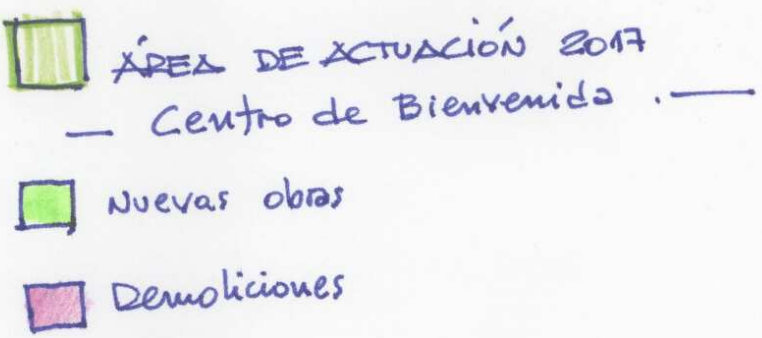 ÁREA DE ACTUACIÓN 2017
— Centro de Bienvenida . —
Nuevas obras
Demoliciones